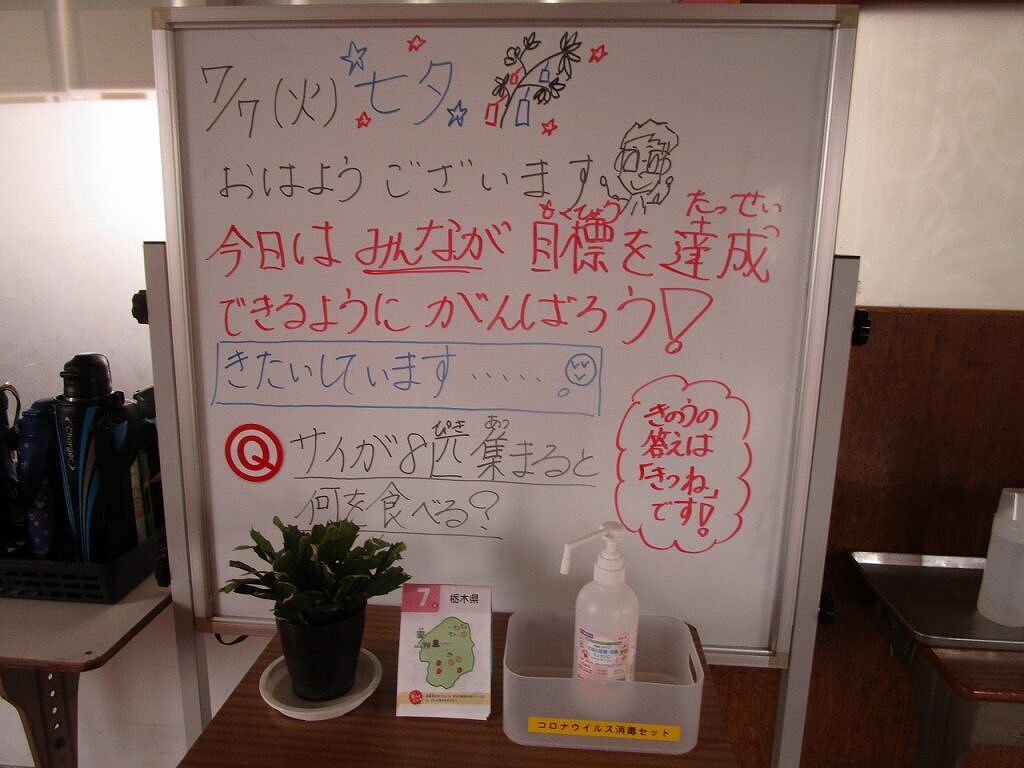 7/7(火)七夕
おはようございます
もくひょう たっせい
今日はみんなが目標を達成
できるようにがんばろう!
きたいしています……
ぴき あつ
Q サイが8匹集まると
何を食べる?
きのうの
答えは
「きつね」
です!
Charger
7
栃木県
コロナウイルス消毒セット